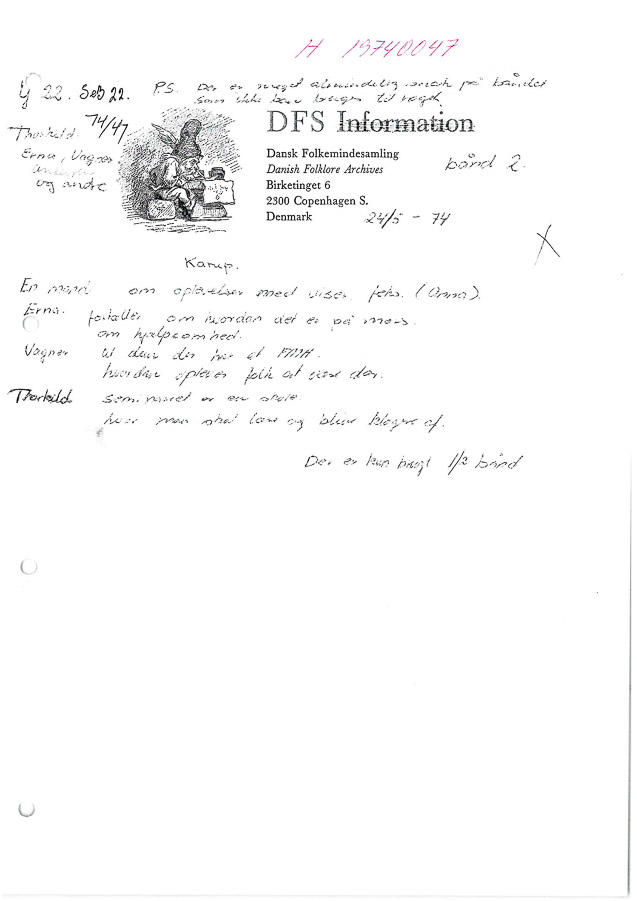 H 19740047
22. Seb 22.
P.S. Der er meget almindelig snak på båndet
som ikke kan bruges til noget
74/47
Thorkild
Erna, Vagner
og andre
DFS Information
Dansk Folkemindesamling
Danish Folklore Archives
Birketinget 6
2300 Copenhagen S.
Denmark
bånd 2.
24/5 - 74
X
Karup.
En mand om oplevelser med viser, feks. (Anna).
Erna. fortæller om hvordan det er på mors.
om hjælpsomhed.
Vagner
hvordan oplever folk at være der.
Thorkild seminaret er en skole
hvor man skal lære og blive klogere af.
Der er kun brugt 1/2 bånd